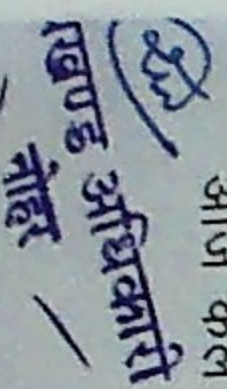 आज कल
खण्ड अधिकारी
नोहर